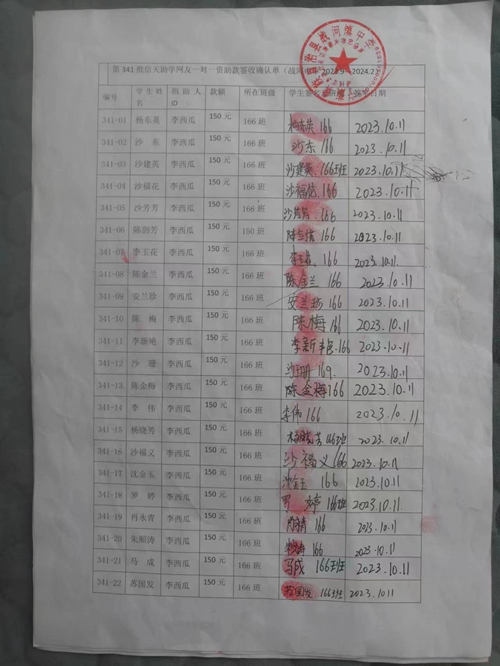 第341批信天助学网友一对一资助款签收确认单 2023.9—2024.2
编号 学生姓名 资助人ID 款额 所在班级 学生签名 日期
341-01 杨东英 李西瓜 150元 166班 166 2023.10.11
341-02 沙东 李西瓜 150元 166班 沙东 2023.10.11
341-03 沙建英 李西瓜 150元 166班 沙建英 166班 2023.10.11
341-04 沙福花 李西瓜 150元 166班 沙福花 166 2023.10.11
341-05 沙芳芳 李西瓜 150元 166班 沙芳芳 166 2023.10.11
341-06 陈剑芳 李西瓜 150元 166 2023.10.11
341-07 李玉花 李西瓜 150元 166班 166 2023.10.11
341-08 陈金兰 李西瓜 150元 166班 陈金兰 166 2023.10.11
341-09 安兰珍 李西瓜 150元 166班 安兰珍 166 2023.10.11
341-10 陈梅 李西瓜 150元 166班 陈梅 166 2023.10.11
341-11 李新艳 李西瓜 150元 166班 李新艳 166 2023.10.11
341-12 沙珊 李西瓜 150元 166班 沙珊 169. 2023.10.11
341-13 陈金梅 李西瓜 150元 166班 陈金梅 166 2023.10.11
341-14 李伟 李西瓜 150元 166班 李伟 166 2023.10.11
341-15 杨晓芳 李西瓜 150元 166班 杨晓芳 166班 2023.10.11
341-16 沙福义 李西瓜 150元 166班 沙福义 166 2023.10.11
341-17 沈金玉 李西瓜 150元 166班 沈金玉 166 2023.10.11
341-18 罗婷 李西瓜 150元 166班 罗婷 166班 2023.10.11
341-19 肖永青 李西瓜 150元 166班 166 2023.10.11
341-20 朱顺涛 李西瓜 150元 166班 166 2023.10.11
341-21 马成 李西瓜 150元 166班 马成 166班 2023.10.11
341-22 苏国发 李西瓜 150元 166班 苏国发 166班 2023.10.11